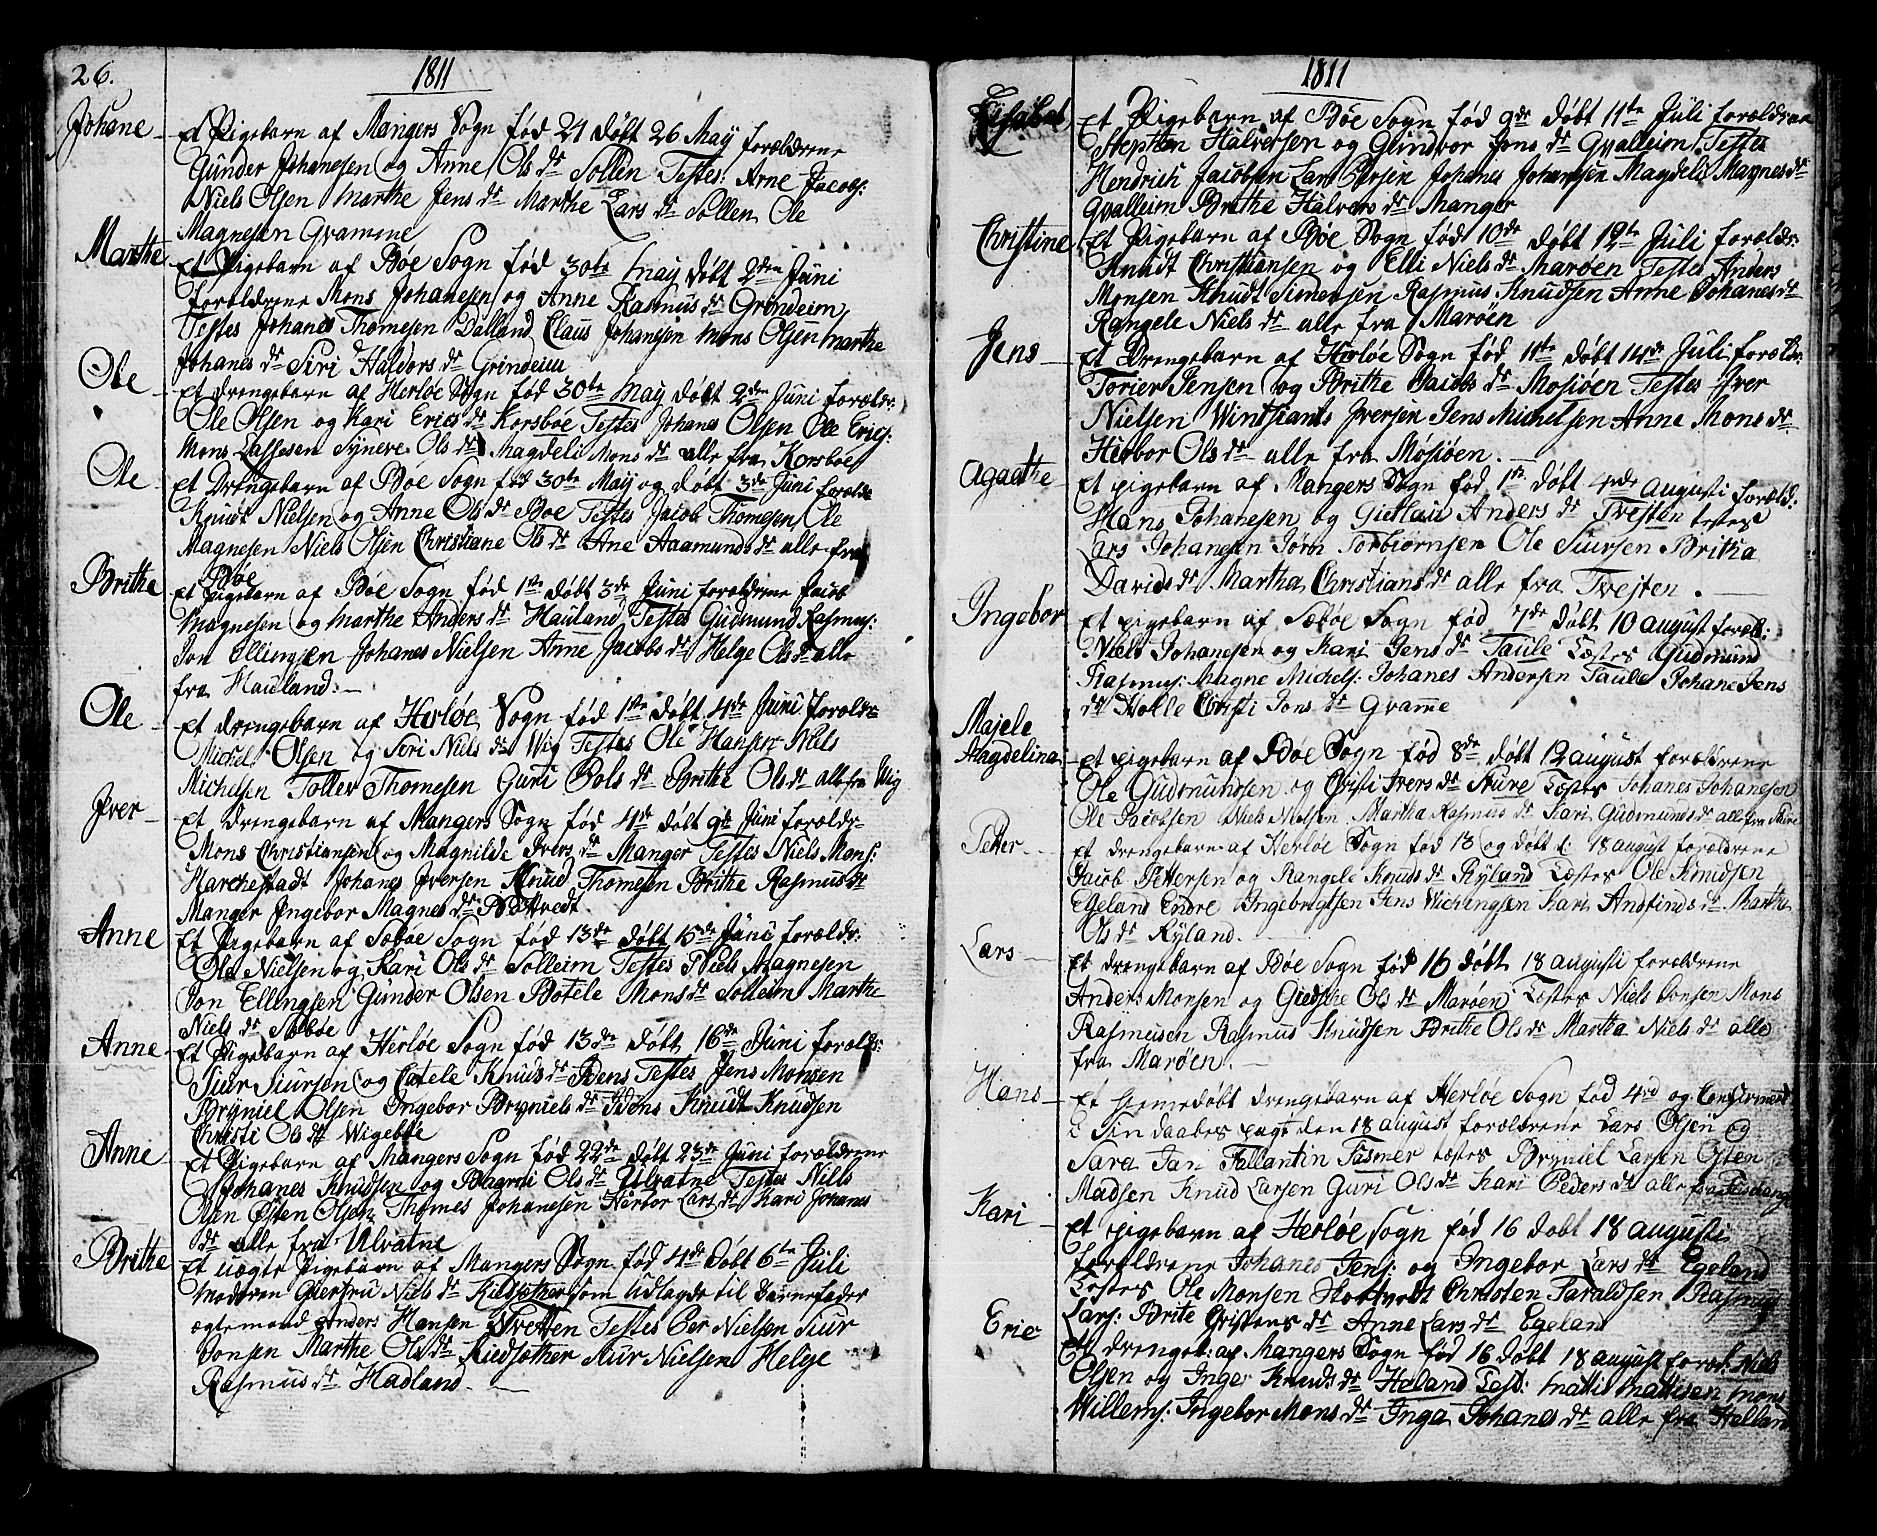 26.
1811
Johane - Et Pigebarn af Mangers Sogn fød 21 døbt 26 May forældrene
Gunder Johanesen og Anne Ols dr Sollen Testes: Arne Jacobs:
Niels Olsen Marthe Jens dr Marthe Lars dr Sollen Ole
Magnesen Gvamme
Marthe - Et Pigebarn af Bøe Sogn fød 30te May døbt 2den Juni
forældrene Mons Johanesen og Anne Rasmus dr Grindeim
Testes Johanes Thomesen Dalland Claus Johansen Mons Olsen Marthe
Johanes dr Siri Haldors dr Grindeim
Ole - Et drengebarn af Herløe Sogn fød 30te May døbt 2den Juni foræld:
Ole Olsen og Kari Erics dr Korsbøe Testes Johanes Olsen Ole Erics:
Mons Lassesen Synere Ols dr Magdeli Mons dr alle fra Korsbøe
Ole - Et Drengebarn af Bøe Sogn fød 30te May og døbt 3de Juni foræld:
Knudt Nielsen og Anne Ols dr Bøe Testes Jacob Thomesen Ole
Magnesen Niels Olsen Christiane Ols dr Ane Aamunds dr alle fra
Bøe
Brithe - Et Pigebarn af Bøe Sogn fød 1ste døbt 3de Juni forældrene Jacob
Magnesen og Marthe Anders dr Hauland Testes Gudmund Rasmus:
Jon Ellingsen Johanes Nielsen Anne Jacobs dr Helge Ols dr alle
fra Hauland. -
Ole - Et drengebarn af Herløe Sogn fød 1ste døbt 4de Juni foræld:
Michel Olsen og Seri Niels dr Wig Testes Ole Hansen Niels
Michelsen Toller Thomesen Guri Pols dr Brithe Ols dr alle fra Wig
Iver - Et drengebarn af Mangers Sogn fød 4de døbt 9de Juni foræld-
Mons Christiansen og Magnilde Ivers dr Manger Testes Niels Mons:
Marchestadt Johanes Iversen Knud Thomesen Brithe Rasmus dr
Manger Ingebor Magnes dr
Anne - Et Pigebarn af Sæbøe Sogn fød 13de døbt 15de Juni foræld:
Ole Nielsen og Kari Ols dr Solleim Testes Niels Magnesen
Jon Ellingsen Gunder Olsen Botele Mons dr Solleim Marthe
Niels dr Sæbøe
Anne - Et Pigebarn af Herløe Sogn fød 13de døbt 16de Juni foræld:
Siur Siursen og Catele Knuds dr Testes Jens Monsen
Bryniel Olsen Ingebor Bryniels dr Knudt Knudsen
Christi Ols dr Wigebøe
Anne - Et Pigebarn af Mangers Sogn fød 22de døbt 23de Juni forældrene
Johanes Knudsen og Ragni Ols dr Ulvatne Testes Niels
Olsen Østen Olsen Thomes Johanesen Herbor Lars dr Kari Johanes
dr alle fra Ulvatne
Brithe - Et uægte Pigebarn af Mangers Sogn fød 4de døbt 6te Juli
Moderen Giertru Niels dr Kidsæther som Udlagde til Barnefader
ægtemand Anders Hansen Tvetten Testes Per Nielsen Siur
Jonsen Marthe Ols dr Kidsæther Siur Nielsen Helge
Rasmus dr Hadland. -
1811
Elisabet Et Pigebarn af Bøe Sogn fød 9de døbt 11te Juli forældrene
Stephen Halversen og Gundvor Jens dr Qvalleim Testes
Hendrich Jacobsen Lars Persen Johanes Johansen Magdeli Magnes dr
Qvalleim Brithe Halvors dr Manger
Christine Et Pigebarn af Bøe Sogn fød 10de døbt 12te Juli foræld:
Knudt Christiansen og Elli Niels dr Marøen Testes Anders
Monsen Knudt Simensen Rasmus Knudsen Anne Johanes dr
Rangele Niels dr alle fra Marøen
Jens - Et Drengebarn af Herløe Sogn fød 11te døbt 14de Juli foræld:
Torier Jensen og Brithe Jacobs dr Mosiøen Testes Iver
Nielsen Iversen Jens Michelsen Anne Mons dr
Herbor Ols dr alle fra Mosiøen. -
Agaethe - Et pigebarn af Mangers Sogn fød 1ste døbt 4de Augusti foræld:
Hans Johanesen og Anders dr Tvejten testes
Lars Johanesen Jørn Torbiørnsen Ole Siursen Britha
Davids dr Martha Christians dr alle fra Tvejten. -
Ingebor Et pigebarn af Sæbøe Sogn fød 7de døbt 10 august foræld:
Niels Johanesen og Kari Jens dr Taule Testes Gudmund
Rasmus: Magne Michels: Johanes Andersen Taule Johane Jens
dr Holle Christi Jons dr Gvamme
Majele
Magdelina - Et pigebarn af Bøe Sogn fød 8de døbt 12 august forældrene
Ole Gudmundsen og Christi Ivers dr Skure Testes Johanes Johanesen
Ole Jacobsen Niels Nielsen Martha Rasmus dr Kari Gudmunds dr alle fra Skure
Petter - Et drengebarn af Herløe Sogn fød 13 og døbt d: 18 august forældrene
Jacob Pettersen og Rangele Knuds dr Ryland Testes Ole Knudsen
Egeland Endre Ingebrigtsen Jens Wichingsen Kari Andfinds dr Martha
Ols dr Ryland. -
Lars - Et drengebarn af Bøe Sogn fød 16 døbt 18 augusti forældrene
Anders Monsen og Giedske Ols dr Marøen Testes Niels Jonsen Mons
Rasmusen Rasmus Knudsen Brithe Ols dr Martha Niels dr alle
fra Marøen. -
Hans - Et hiemedøbt drengebarn af Herløe Sogn fød 4rd og Confirmert
i Sin daabes pagt den 18 august forældrene Lars Olsen og
Sara Jan Fallantin Fasmer testes Bryniel Larsen Østen
Madsen Knud Larsen Guri Ols dr Kari Peders dr alle fra
Kari - Et pigebarn af Herløe Sogn fød 16 døbt 18 augusti
forældrene Johanes Jens: og Ingebor Lars dr Egeland
Testes Ole Monsen Christen Taraldsen Rasmus
Lars: Brite Christens dr Anne Lars dr Egeland
Eric Et drengeb: af Mangers Sogn fød 16 døbt 18 august foræd: Niels
Olsen og Inger Knuds dr Heland Test: Matti Mattisen Mons
Willems: Ingebor Mons dr Inga Johanes dr alle fra Helland